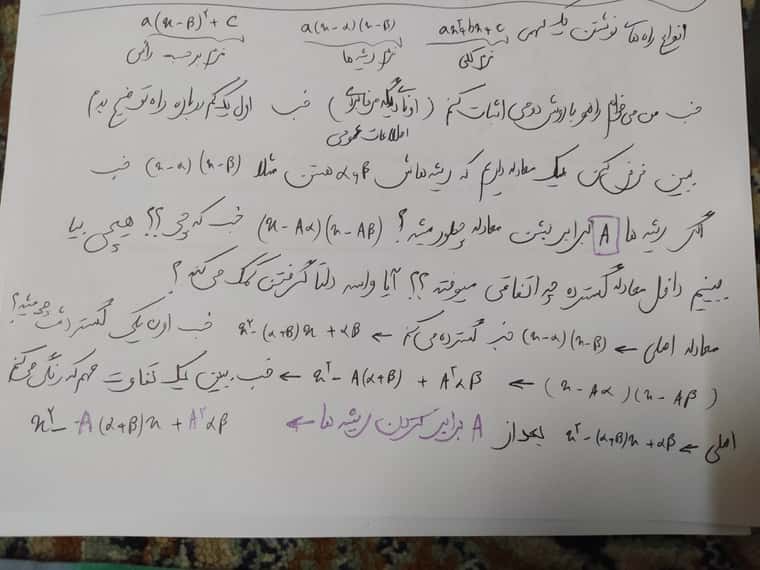 انواع راه ها نوشتن یک سهمی ax²+bx+c a(x-α)(x-β) a(x-β)²+c
نرم کلی نرم ریشه ها نرم برحسب رأس
خب من می خوام راهو با روش دومی اثبات کنم ( ) خب اول یکم درباره راه توضیح بدم
اطلاعات عمومی
ببین فرض کن یک معادله داریم که ریشه هاش α و β هستن مثلا (x-α)(x-β) خب
اگر ریشه ها A برابر بشن معادله چطور میشه؟ (x-Aα)(x-Aβ) خب که چی؟؟ هیچی بیا
ببینیم داخل معادله گسترده چه اتفاقی میوفته؟؟ آیا واسه دلتا گرفتن کمک می کنه؟
معادله اصلی ← (x-α)(x-β) خب گسترده می کنم ← x²-(α+β)x+αβ خب اون یکی گسترده اش چی میشه؟
(x-Aα)(x-Aβ) ← x²-A(α+β)+A²αβ ← خب ببین یک تفاوت مهم که رنگی می کنم
اصلی ← x²-(α+β)x+αβ بعد از A برابر کردن ریشه ها ← x²-A(α+β)x+A²αβ